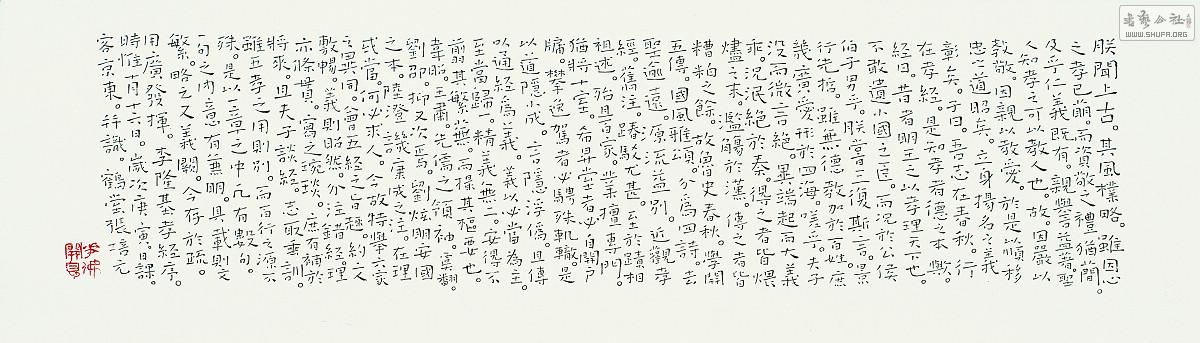 朕聞上古。其風樸略。雖因心
之孝已萌。而資敬之禮猶簡。
及乎仁義既有。親譽益著。聖
人知孝之可以教人也。故因嚴以
教敬。因親以教愛。於是以順移
忠之道昭矣。立身揚名之義
彰矣。子曰。吾志在春秋。行
在孝經。是知孝者德之本歟。
經曰。昔者明王之以孝理天下也。
不敢遺小國之臣。而況於公侯
伯子男乎。朕嘗三復斯言。景
行先哲。雖無德教加於百姓。庶
幾廣愛形於四海。嗟乎。夫子
沒而微言絕。異端起而大義
乖。況泯絕於秦。得之者皆煨
燼之末。濫觴於漢。傳之者皆
糟粕之餘。故魯史春秋。學開
五傳。國風雅頌。分為四詩。去
聖逾遠。源流益別。近觀孝
經。舊注。踳駁尤甚。至於蹟相
祖述。殆且百家。業擅專門。
猶將十室。希昇堂者。必自開戶
牖。攀逸駕者。必騁殊軌轍。是
以道隱小成。言隱浮偽。且傳
以通經為義。義以必當為主。
至當歸一。精義無二。安得不
翦其繁蕪。而撮其樞要也。
韋昭。王肅。先儒之領袖。虞翻。
劉邵。抑又次焉。劉炫明安國
之本。陸澄譏康成之注。在理
或當。何必求人。今故特舉六家
之異同。會五經之旨趣。約文
敷暢。義則昭然。分注錯經。理
亦條貫。寫之琬琰。庶有補於
將來。且夫子談經。志取垂訓。
雖五孝之用則別。而百行之源不
殊。是以一章之中。凡有數句。
一句之內。意有兼明。具載則文
繁。略之又義闕。今存於疏。
用廣發揮。李隆基孝經序。
時惟十月十六日。歲次庚寅。日課
客京東。并識。鶴堂張培元
書藝公社
WWW.SHUFA.ORG